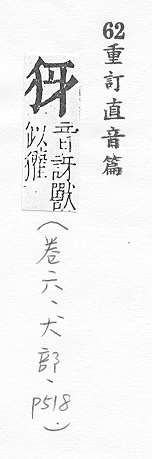 62重訂直音篇
犽
音訝獸
似獾
（卷六、犬部、p518.）